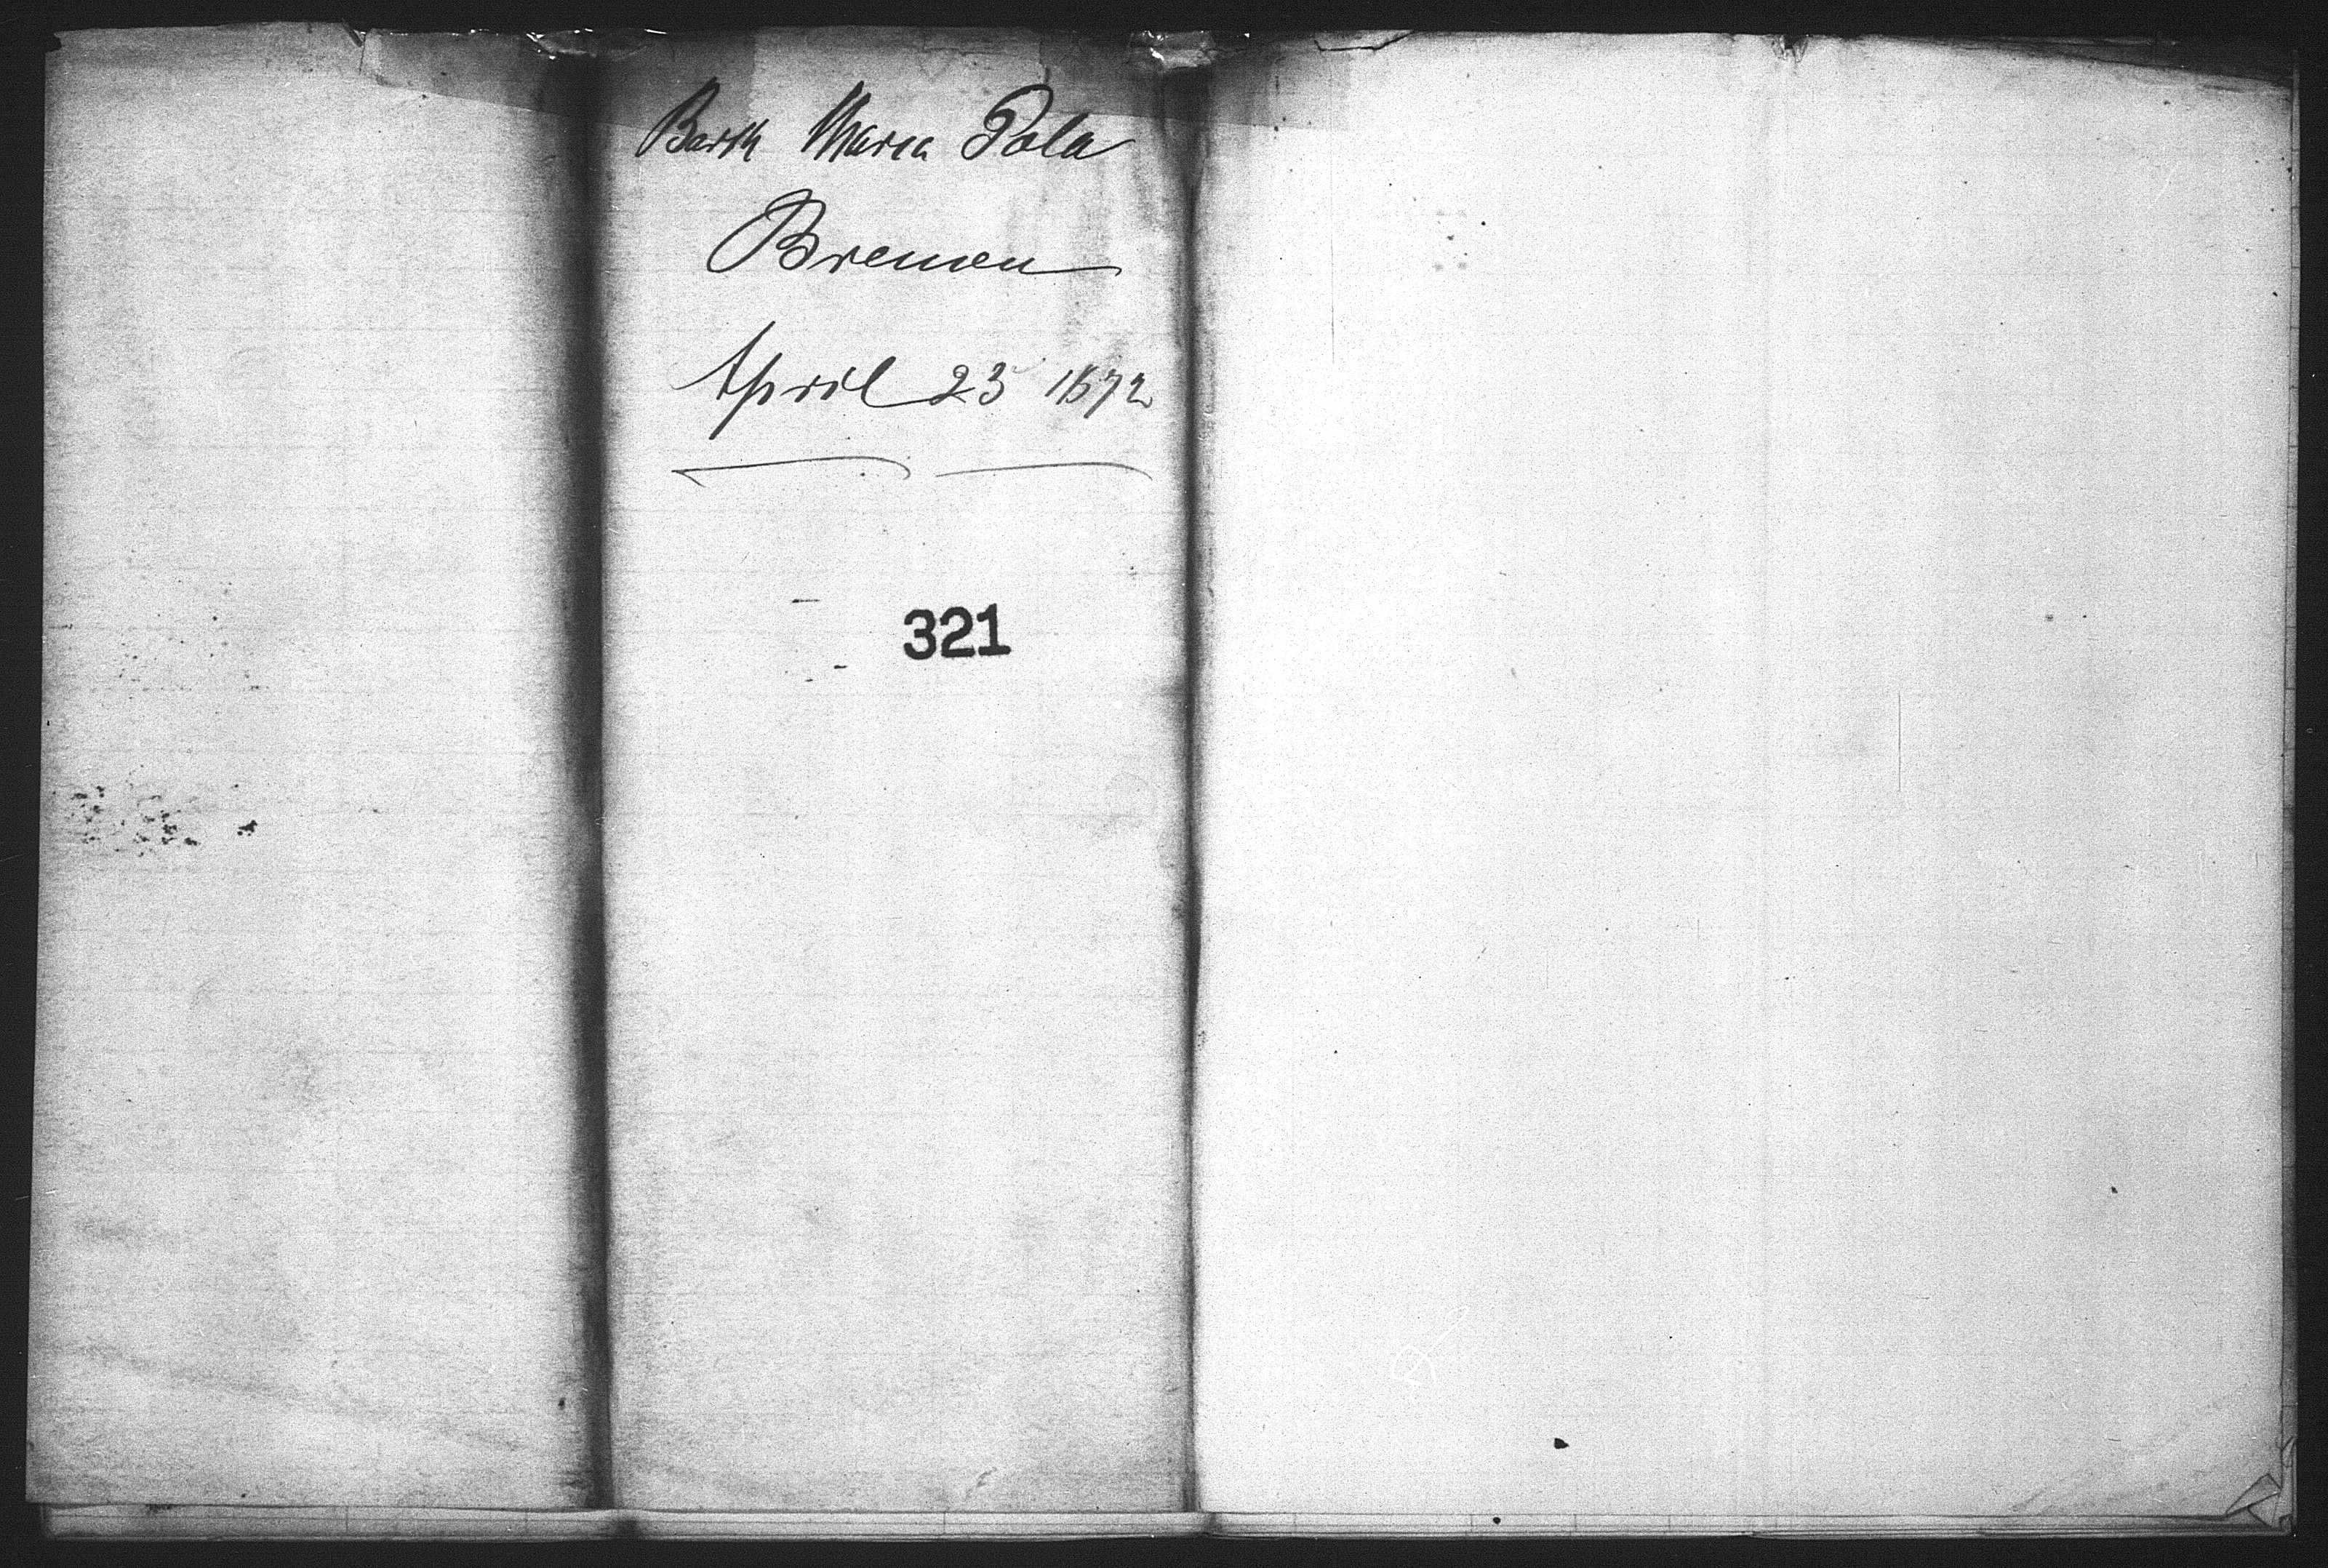 Bark Maria Pola
Bremen
April 23 1872
321